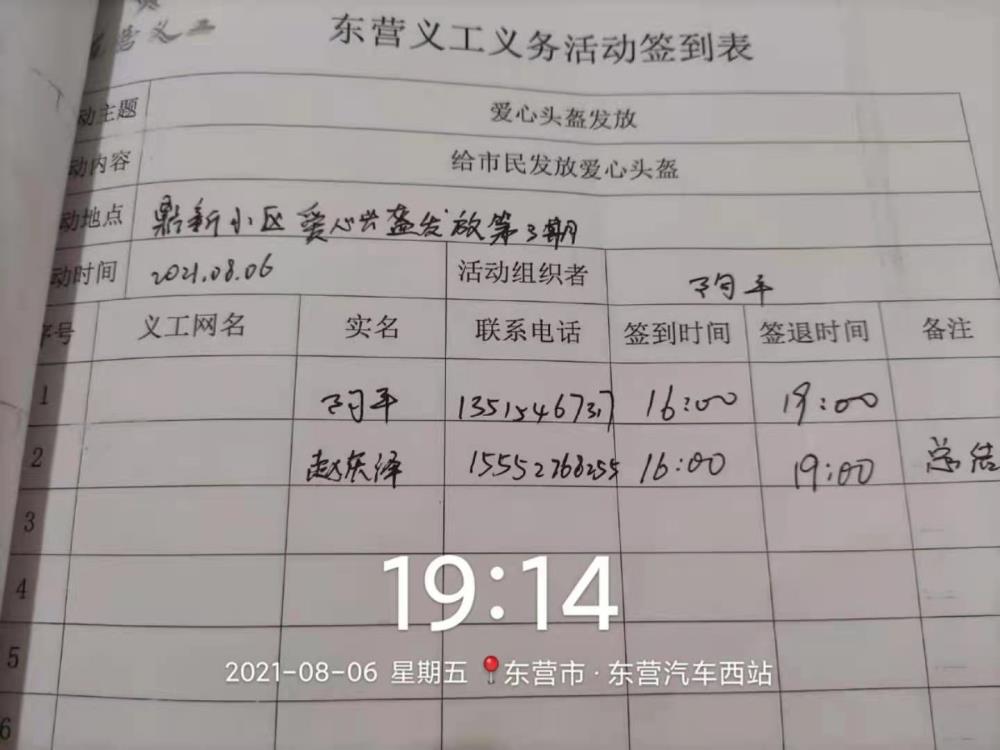 营义工
东营义工义务活动签到表
动主题 爱心头盔发放
动内容 给市民发放爱心头盔
动地点 鼎新小区爱心头盔发放第3期
动时间 2021.08.06 活动组织者
序号 义工网名 实名 联系电话 签到时间 签退时间 备注
1 13515467317 16:00 19:00
2 赵庆泽 15552768255 16:00 19:00 总结
3
4
5
6
19:14
2021-08-06 星期五 东营市·东营汽车西站